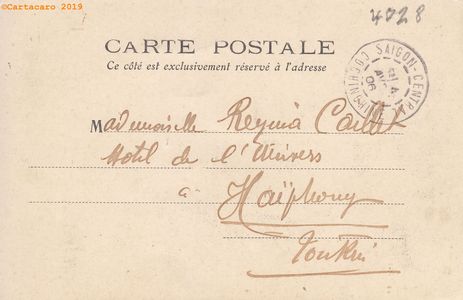 ©Cartacaro 2019
4028
CARTE POSTALE
Ce côté est exclusivement réservé à l'adresse
SAIGON-CENTRAL
COCHINCHINE
06
Mademoiselle Reyna Caillet
Hôtel de l'Univers
à Haïphong
Tonkin